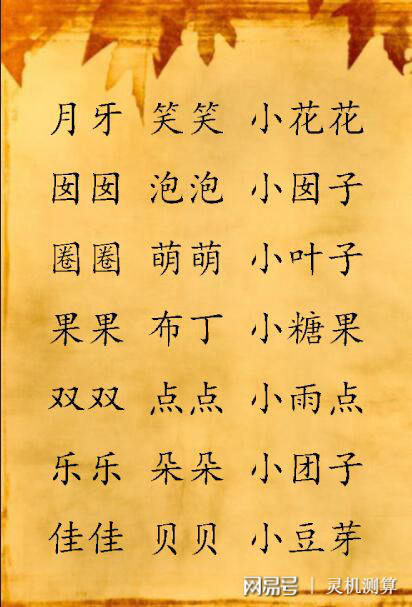 月牙 笑笑 小花花
囡囡 泡泡 小囡子
圈圈 萌萌 小叶子
果果 布丁 小糖果
双双 点点 小雨点
乐乐 朵朵 小团子
佳佳 贝贝 小豆芽
网易号 | 灵机测算